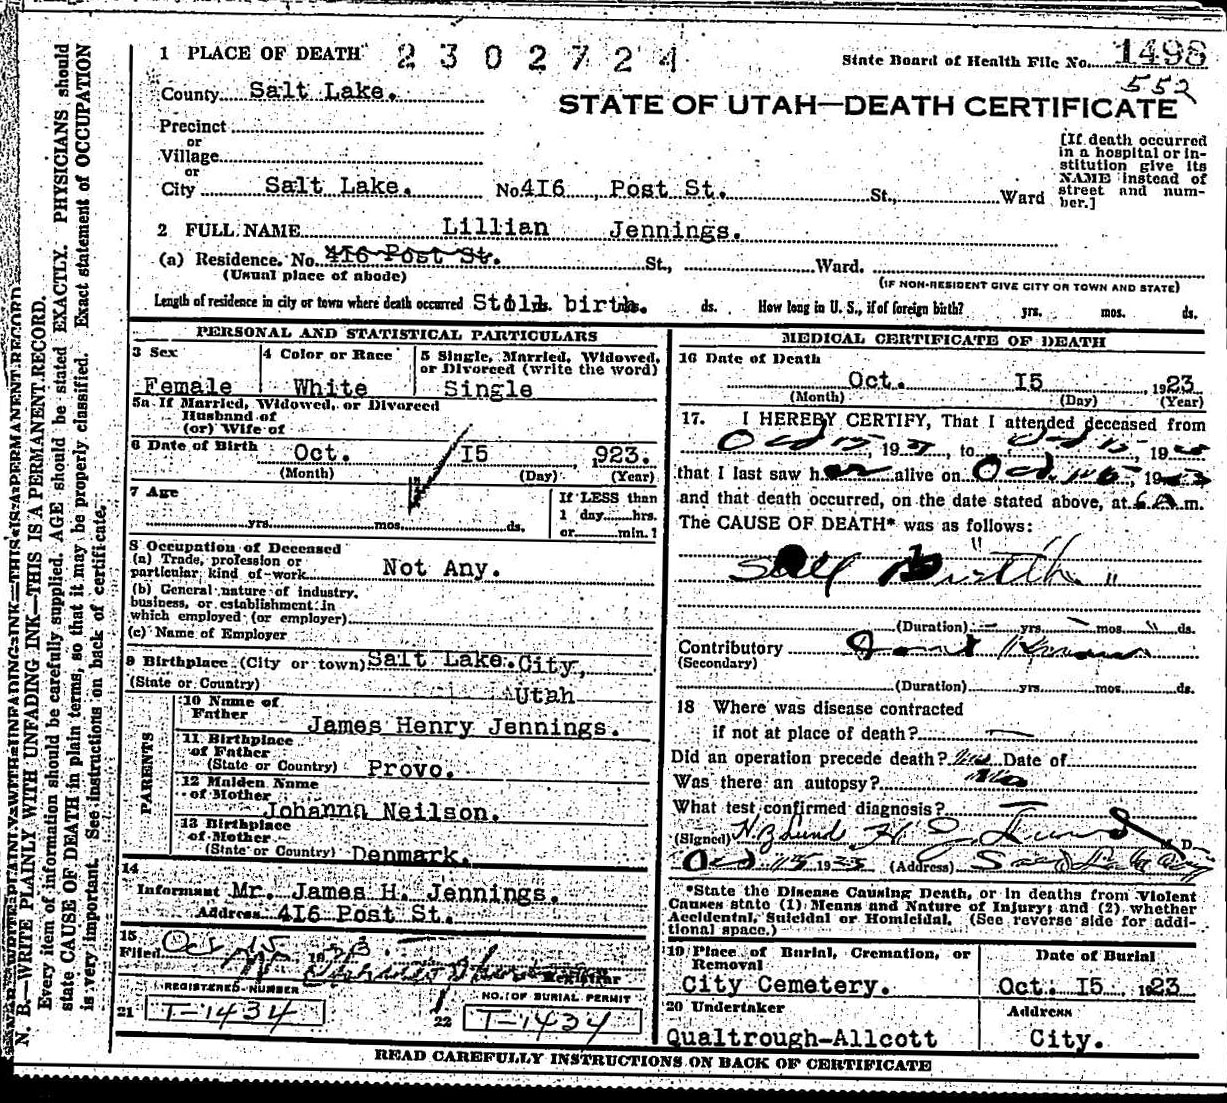 1 PLACE OF DEATH 2302724 State Board of Health File No. 1498
County Salt Lake. 552
STATE OF UTAH—DEATH CERTIFICATE
Precinct
or
Village
or
City Salt Lake. No 416 Post St. St., Ward
[If death occurred
in a hospital or in-
stitution give its
NAME instead of
street and num-
ber.]
2 FULL NAME Lillian Jennings.
(a) Residence. No. 416 Post St. St., Ward.
(Usual place of abode) (IF NON-RESIDENT GIVE CITY OR TOWN AND STATE)
Length of residence in city or town where death occurred Still birth. ds. How long in U. S., if of foreign birth? yrs. mos. ds.
PERSONAL AND STATISTICAL PARTICULARS
3 Sex
Female
4 Color or Race
White
5 Single, Married, Widowed,
or Divorced (write the word)
Single
5a If Married, Widowed, or Divorced
Husband of
(or) Wife of
6 Date of Birth Oct. 15 , 923.
(Month) (Day) (Year)
7 Age
yrs. mos. ds.
If LESS than
1 day hrs.
or min.?
8 Occupation of Deceased
(a) Trade, profession or
particular kind of work Not Any.
(b) General nature of industry,
business, or establishment in
which employed (or employer)
(c) Name of Employer
9 Birthplace (City or town) Salt Lake City,
(State or Country) Utah
PARENTS
10 Name of
Father James Henry Jennings.
11 Birthplace
of Father
(State or Country) Provo.
12 Maiden Name
of Mother
Johanna Neilson.
13 Birthplace
of Mother
(State or Country) Denmark.
14
Informant Mr. James H. Jennings.
Address 416 Post St.
15
Filed Oct 15 1923
Registrar
REGISTERED NUMBER
21 T-1434
NO. OF BURIAL PERMIT
22 T-1434
MEDICAL CERTIFICATE OF DEATH
16 Date of Death
Oct. 15 , 1923
(Month) (Day) (Year)
17. I HEREBY CERTIFY, That I attended deceased from
Oct 15, 19 , to Oct 15, 19
that I last saw her alive on Oct. 15, 1923
and that death occurred, on the date stated above, at 6 A m.
The CAUSE OF DEATH* was as follows:
Still Birth
(Duration) yrs mos. ds.
Contributory
(Secondary)
(Duration) yrs. mos. ds.
18 Where was disease contracted
if not at place of death?
Did an operation precede death? Date of
Was there an autopsy?
What test confirmed diagnosis?
(Signed) H G Lund M. D.
Oct 15 1923 (Address) Salt Lake City
*State the Disease Causing Death, or in deaths from Violent
Causes state (1) Means and Nature of Injury; and (2) whether
Accidental, Suicidal or Homicidal. (See reverse side for addi-
tional space.)
19 Place of Burial, Cremation, or
Removal
City Cemetery.
Date of Burial
Oct. 15 , 1923
20 Undertaker
Qualtrough-Allcott
Address
City.
READ CAREFULLY INSTRUCTIONS ON BACK OF CERTIFICATE
N. B.—WRITE PLAINLY WITH UNFADING INK—THIS IS A PERMANENT RECORD.
Every item of information should be carefully supplied. AGE should be stated EXACTLY. PHYSICIANS should
state CAUSE OF DEATH in plain terms, so that it may be properly classified. Exact statement of OCCUPATION
is very important. See instructions on back of certificate.